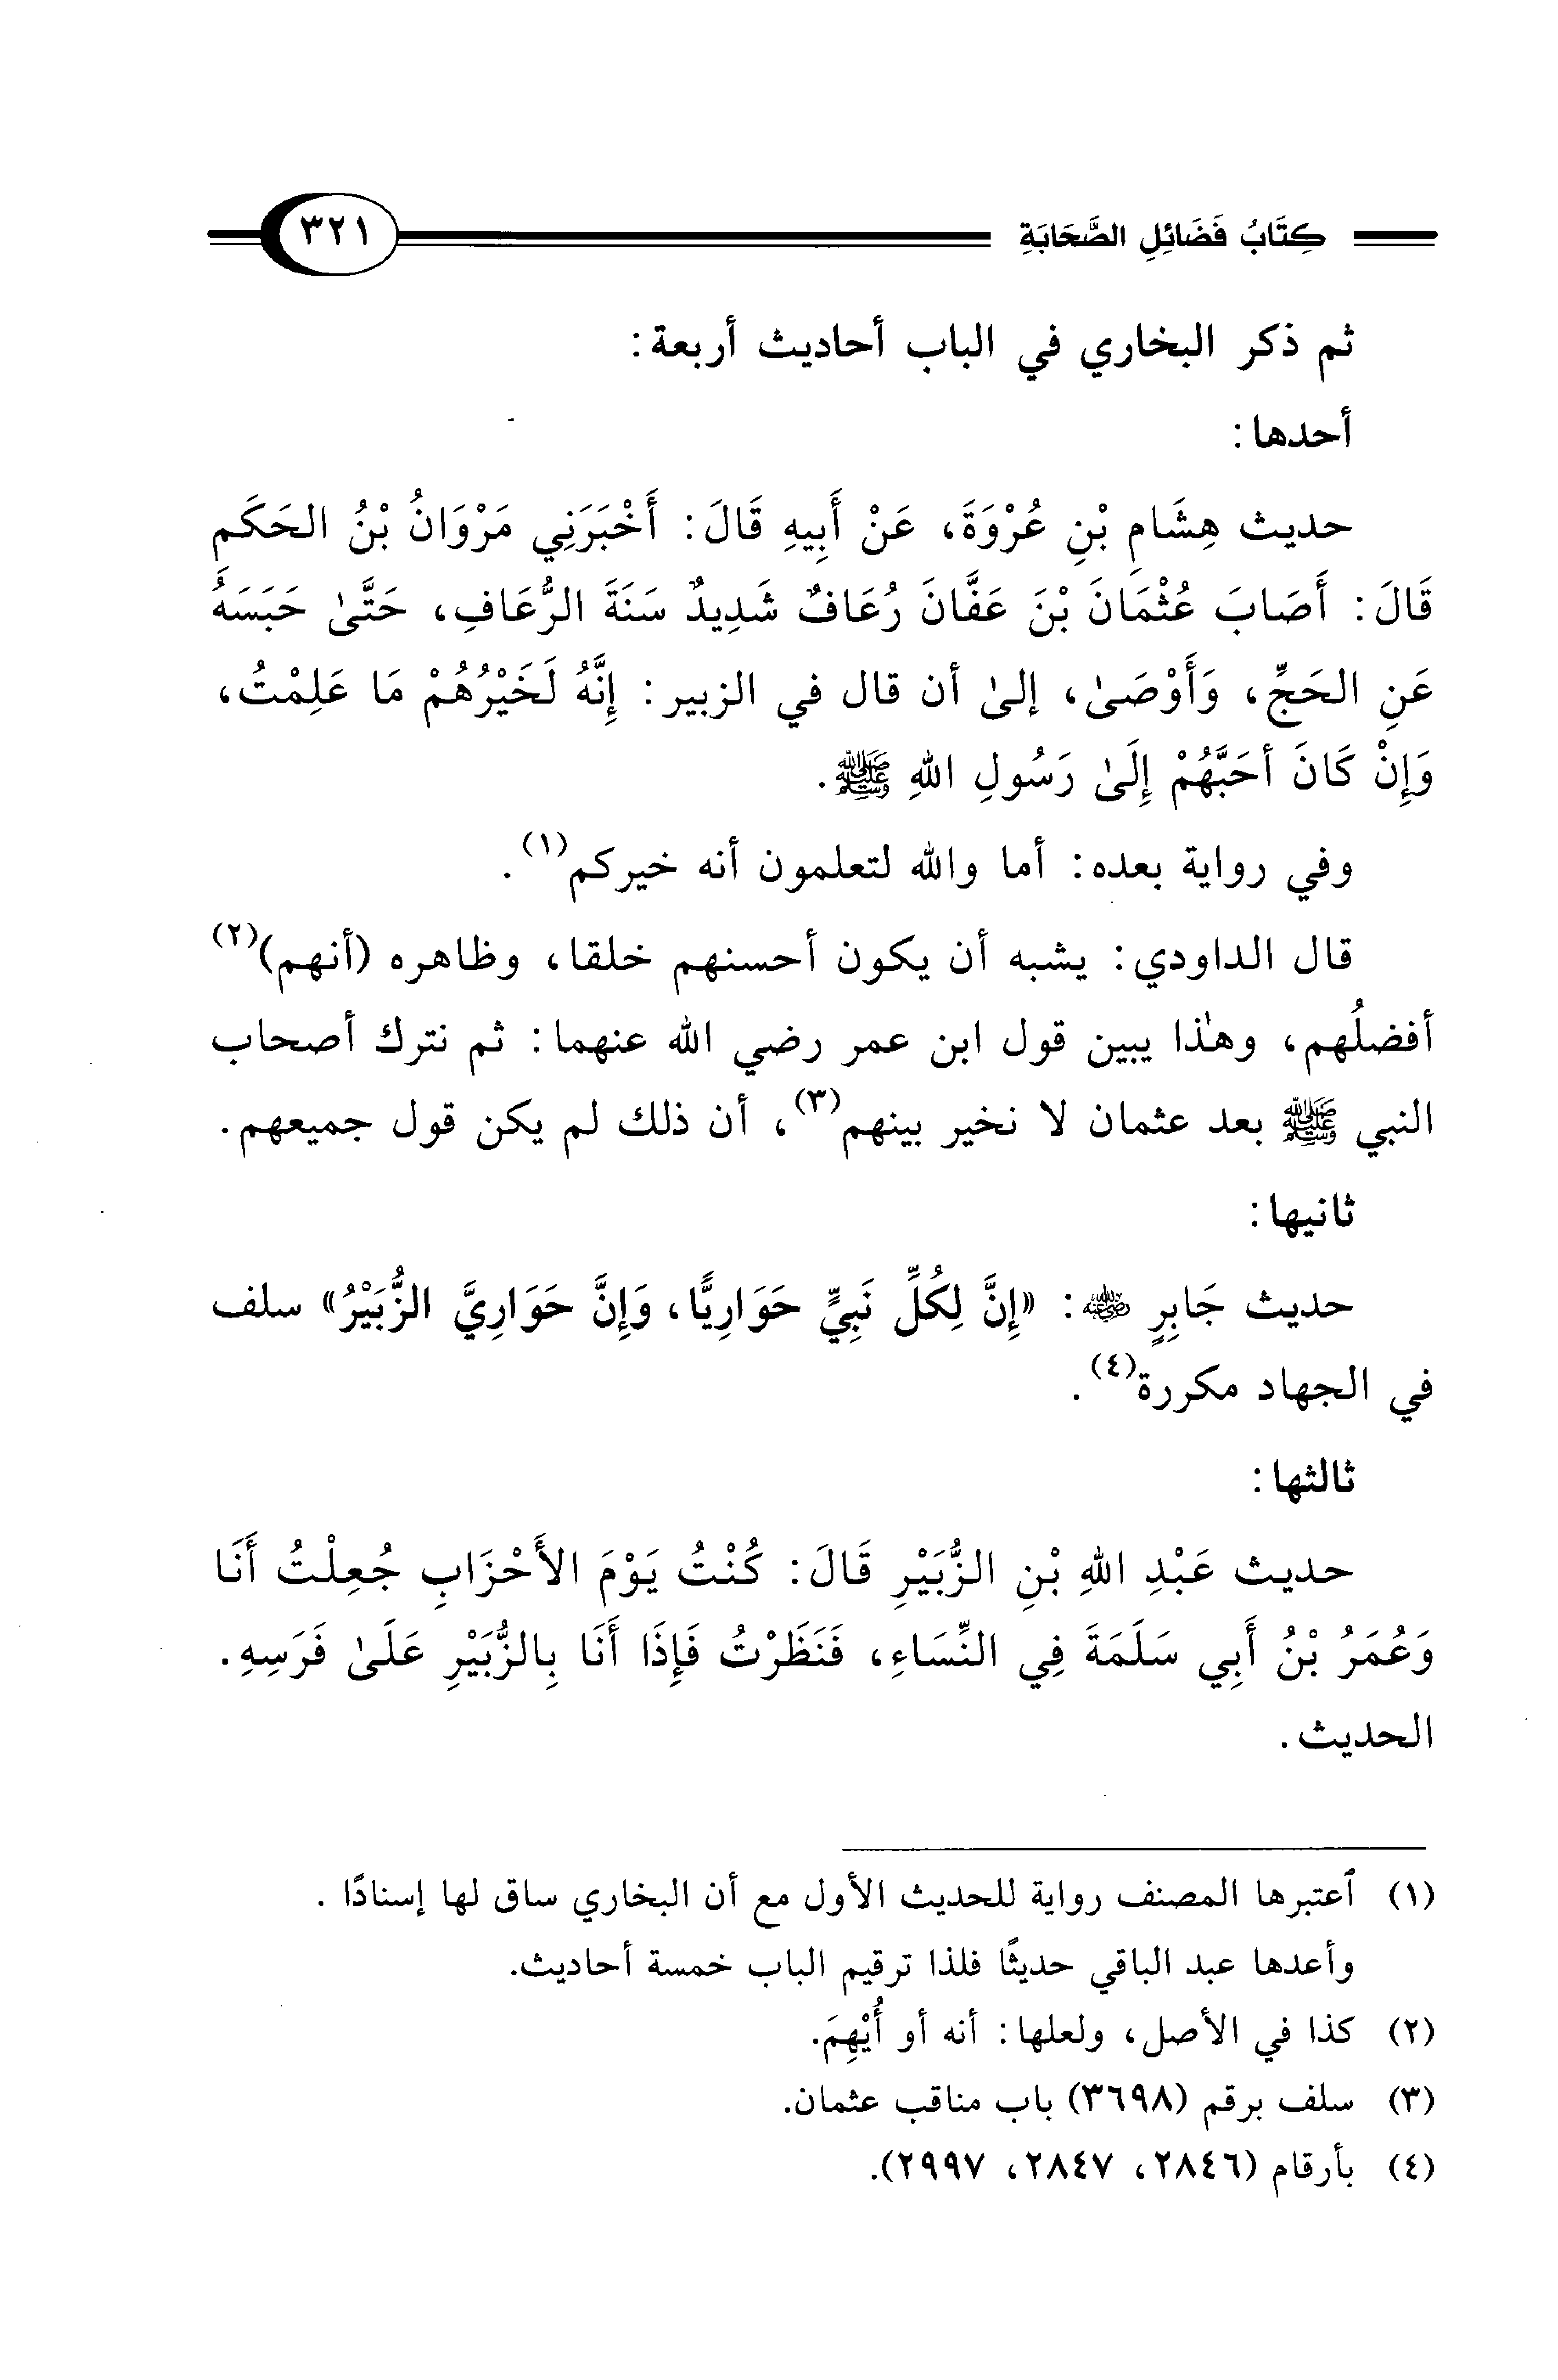 كِتَابُ فَضَائِلِ الصَّحَابَةِ ٣٢١
ثم ذكر البخاري في الباب أحاديث أربعة:
أحدها:
حديث هِشَامِ بْنِ عُرْوَةَ، عَنْ أَبِيهِ قَالَ: أَخْبَرَنِي مَرْوَانُ بْنُ الحَكَمِ
قَالَ: أَصَابَ عُثْمَانَ بْنَ عَفَّانَ رُعَافٌ شَدِيدٌ سَنَةَ الرُّعَافِ، حَتَّىٰ حَبَسَهُ
عَنِ الحَجِّ، وَأَوْصَىٰ، إلىٰ أن قال في الزبير: إِنَّهُ لَخَيْرُهُمْ مَا عَلِمْتُ،
وَإِنْ كَانَ أحَبَّهُمْ إِلَىٰ رَسُولِ اللهِ ﷺ.
وفي رواية بعده: أما والله لتعلمون أنه خيركم(١).
قال الداودي: يشبه أن يكون أحسنهم خلقا، وظاهره (أنهم)(٢)
أفضلُهم، وهٰذا يبين قول ابن عمر رضي الله عنهما: ثم نترك أصحاب
النبي ﷺ بعد عثمان لا نخير بينهم(٣)، أن ذلك لم يكن قول جميعهم.
ثانيها:
حديث جَابِرٍ رضي الله عنه: «إِنَّ لِكُلِّ نَبِيٍّ حَوَارِيًّا، وَإِنَّ حَوَارِيَّ الزُّبَيْرُ» سلف
في الجهاد مكررة(٤).
ثالثها:
حديث عَبْدِ اللهِ بْنِ الزُّبَيْرِ قَالَ: كُنْتُ يَوْمَ الأَحْزَابِ جُعِلْتُ أَنَا
وَعُمَرُ بْنُ أَبِي سَلَمَةَ فِي النِّسَاءِ، فَنَظَرْتُ فَإِذَا أَنَا بِالزُّبَيْرِ عَلَىٰ فَرَسِهِ.
الحديث.
(١) ٱعتبرها المصنف رواية للحديث الأول مع أن البخاري ساق لها إسنادًا .
وأعدها عبد الباقي حديثًا فلذا ترقيم الباب خمسة أحاديث.
(٢) كذا في الأصل، ولعلها: أنه أو أُيْهِمَ.
(٣) سلف برقم (٣٦٩٨) باب مناقب عثمان.
(٤) بأرقام (٢٨٤٦، ٢٨٤٧، ٢٩٩٧).